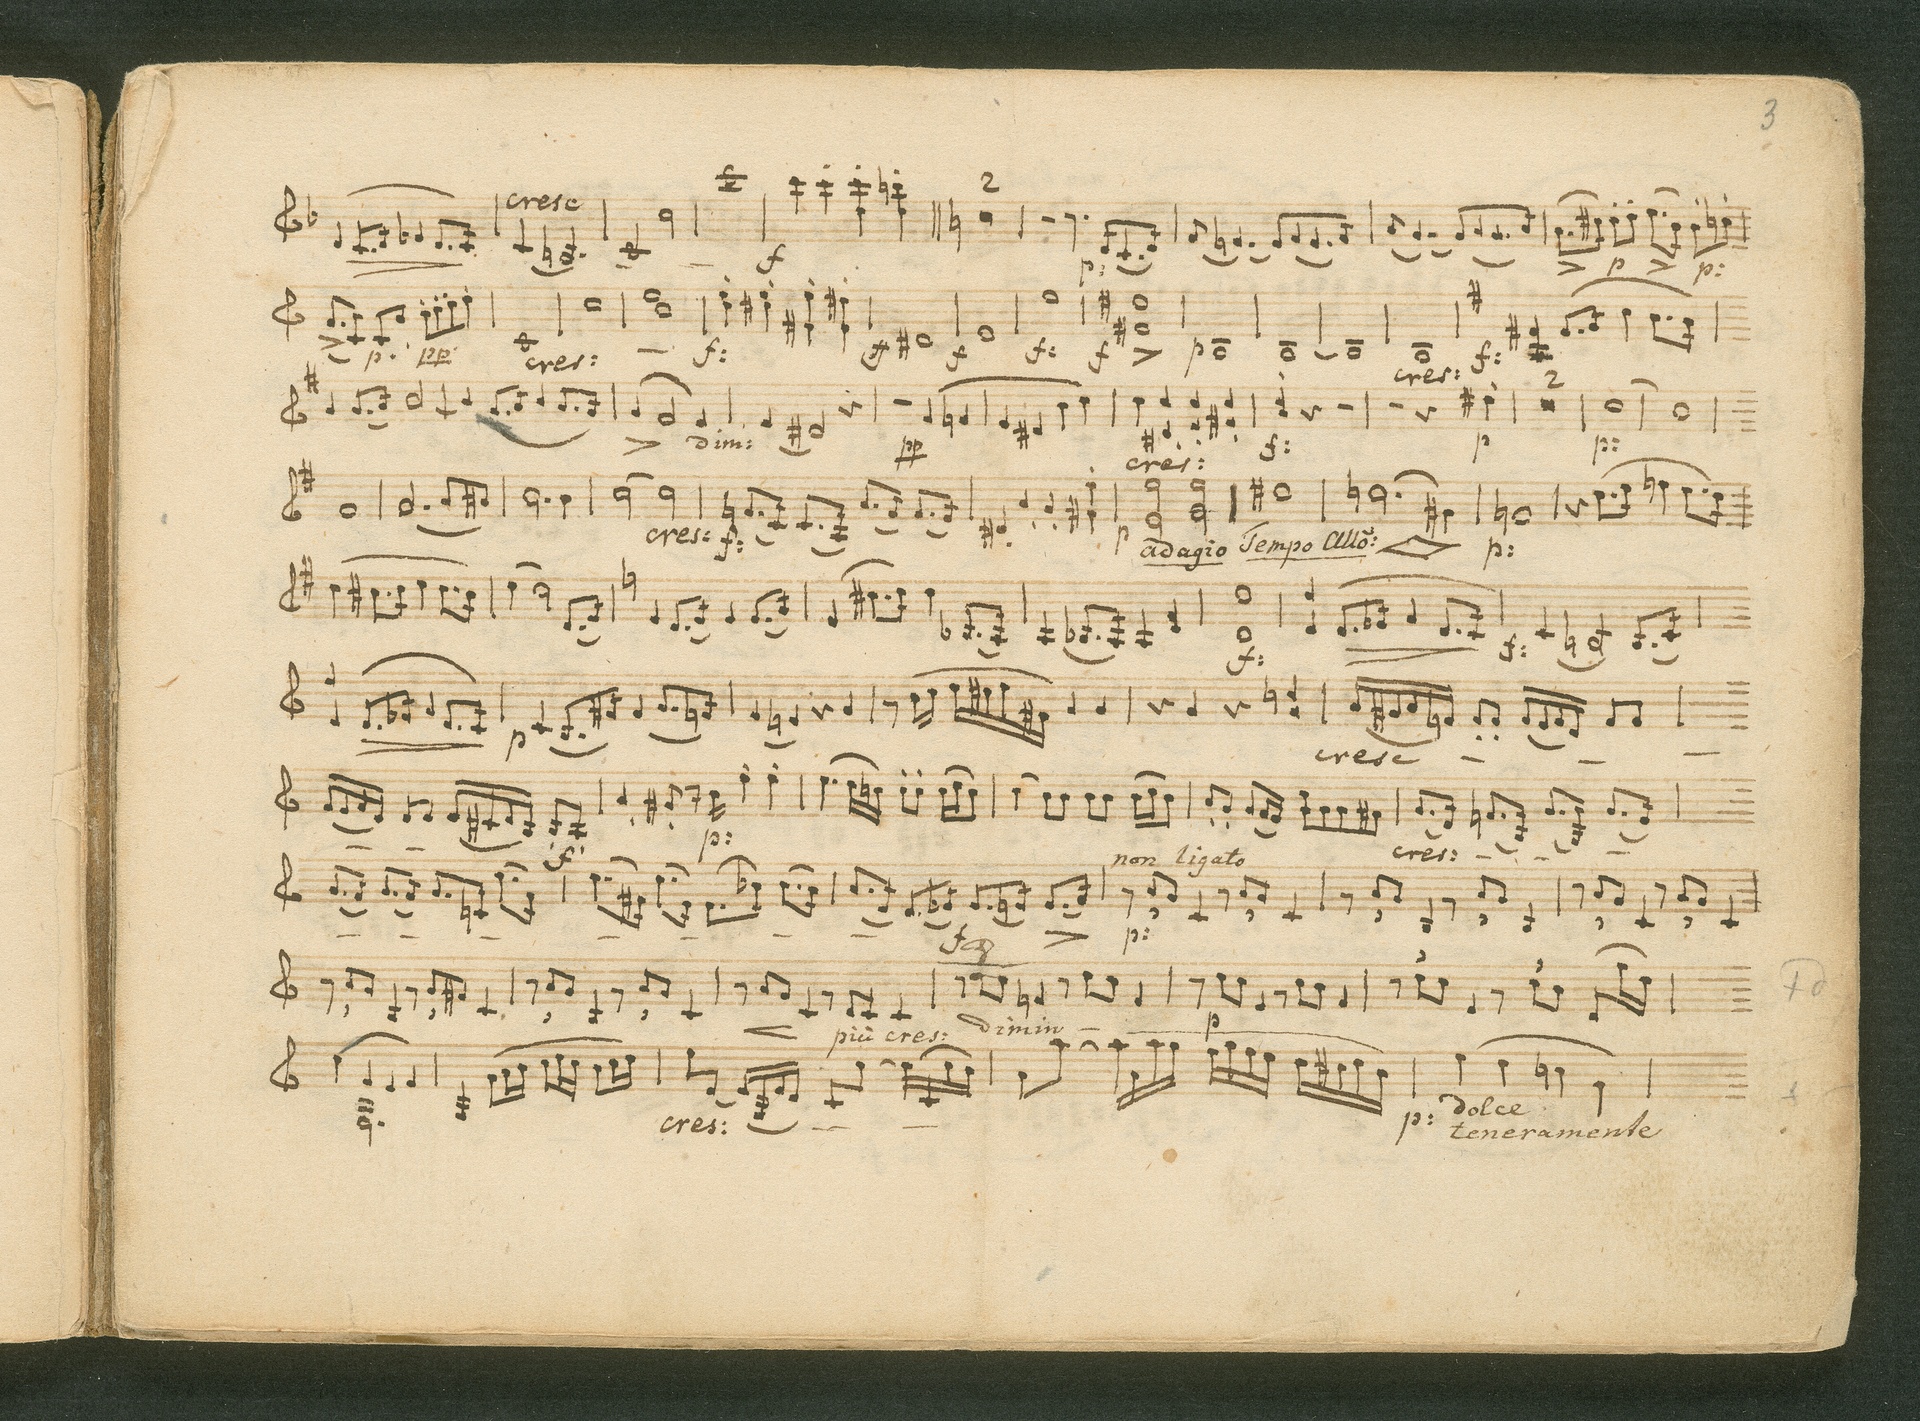 3
cresc
2
f p: p p:
p: pp cres: f: f f: f p cres: f:
2
dim: pp cres: f: p p:
cres: f: p adagio Tempo Allo: p:
f: f:
p cresc
f: p: cres:
non ligato
f p:
più cres: dimin p
cres: p: dolce
teneramente